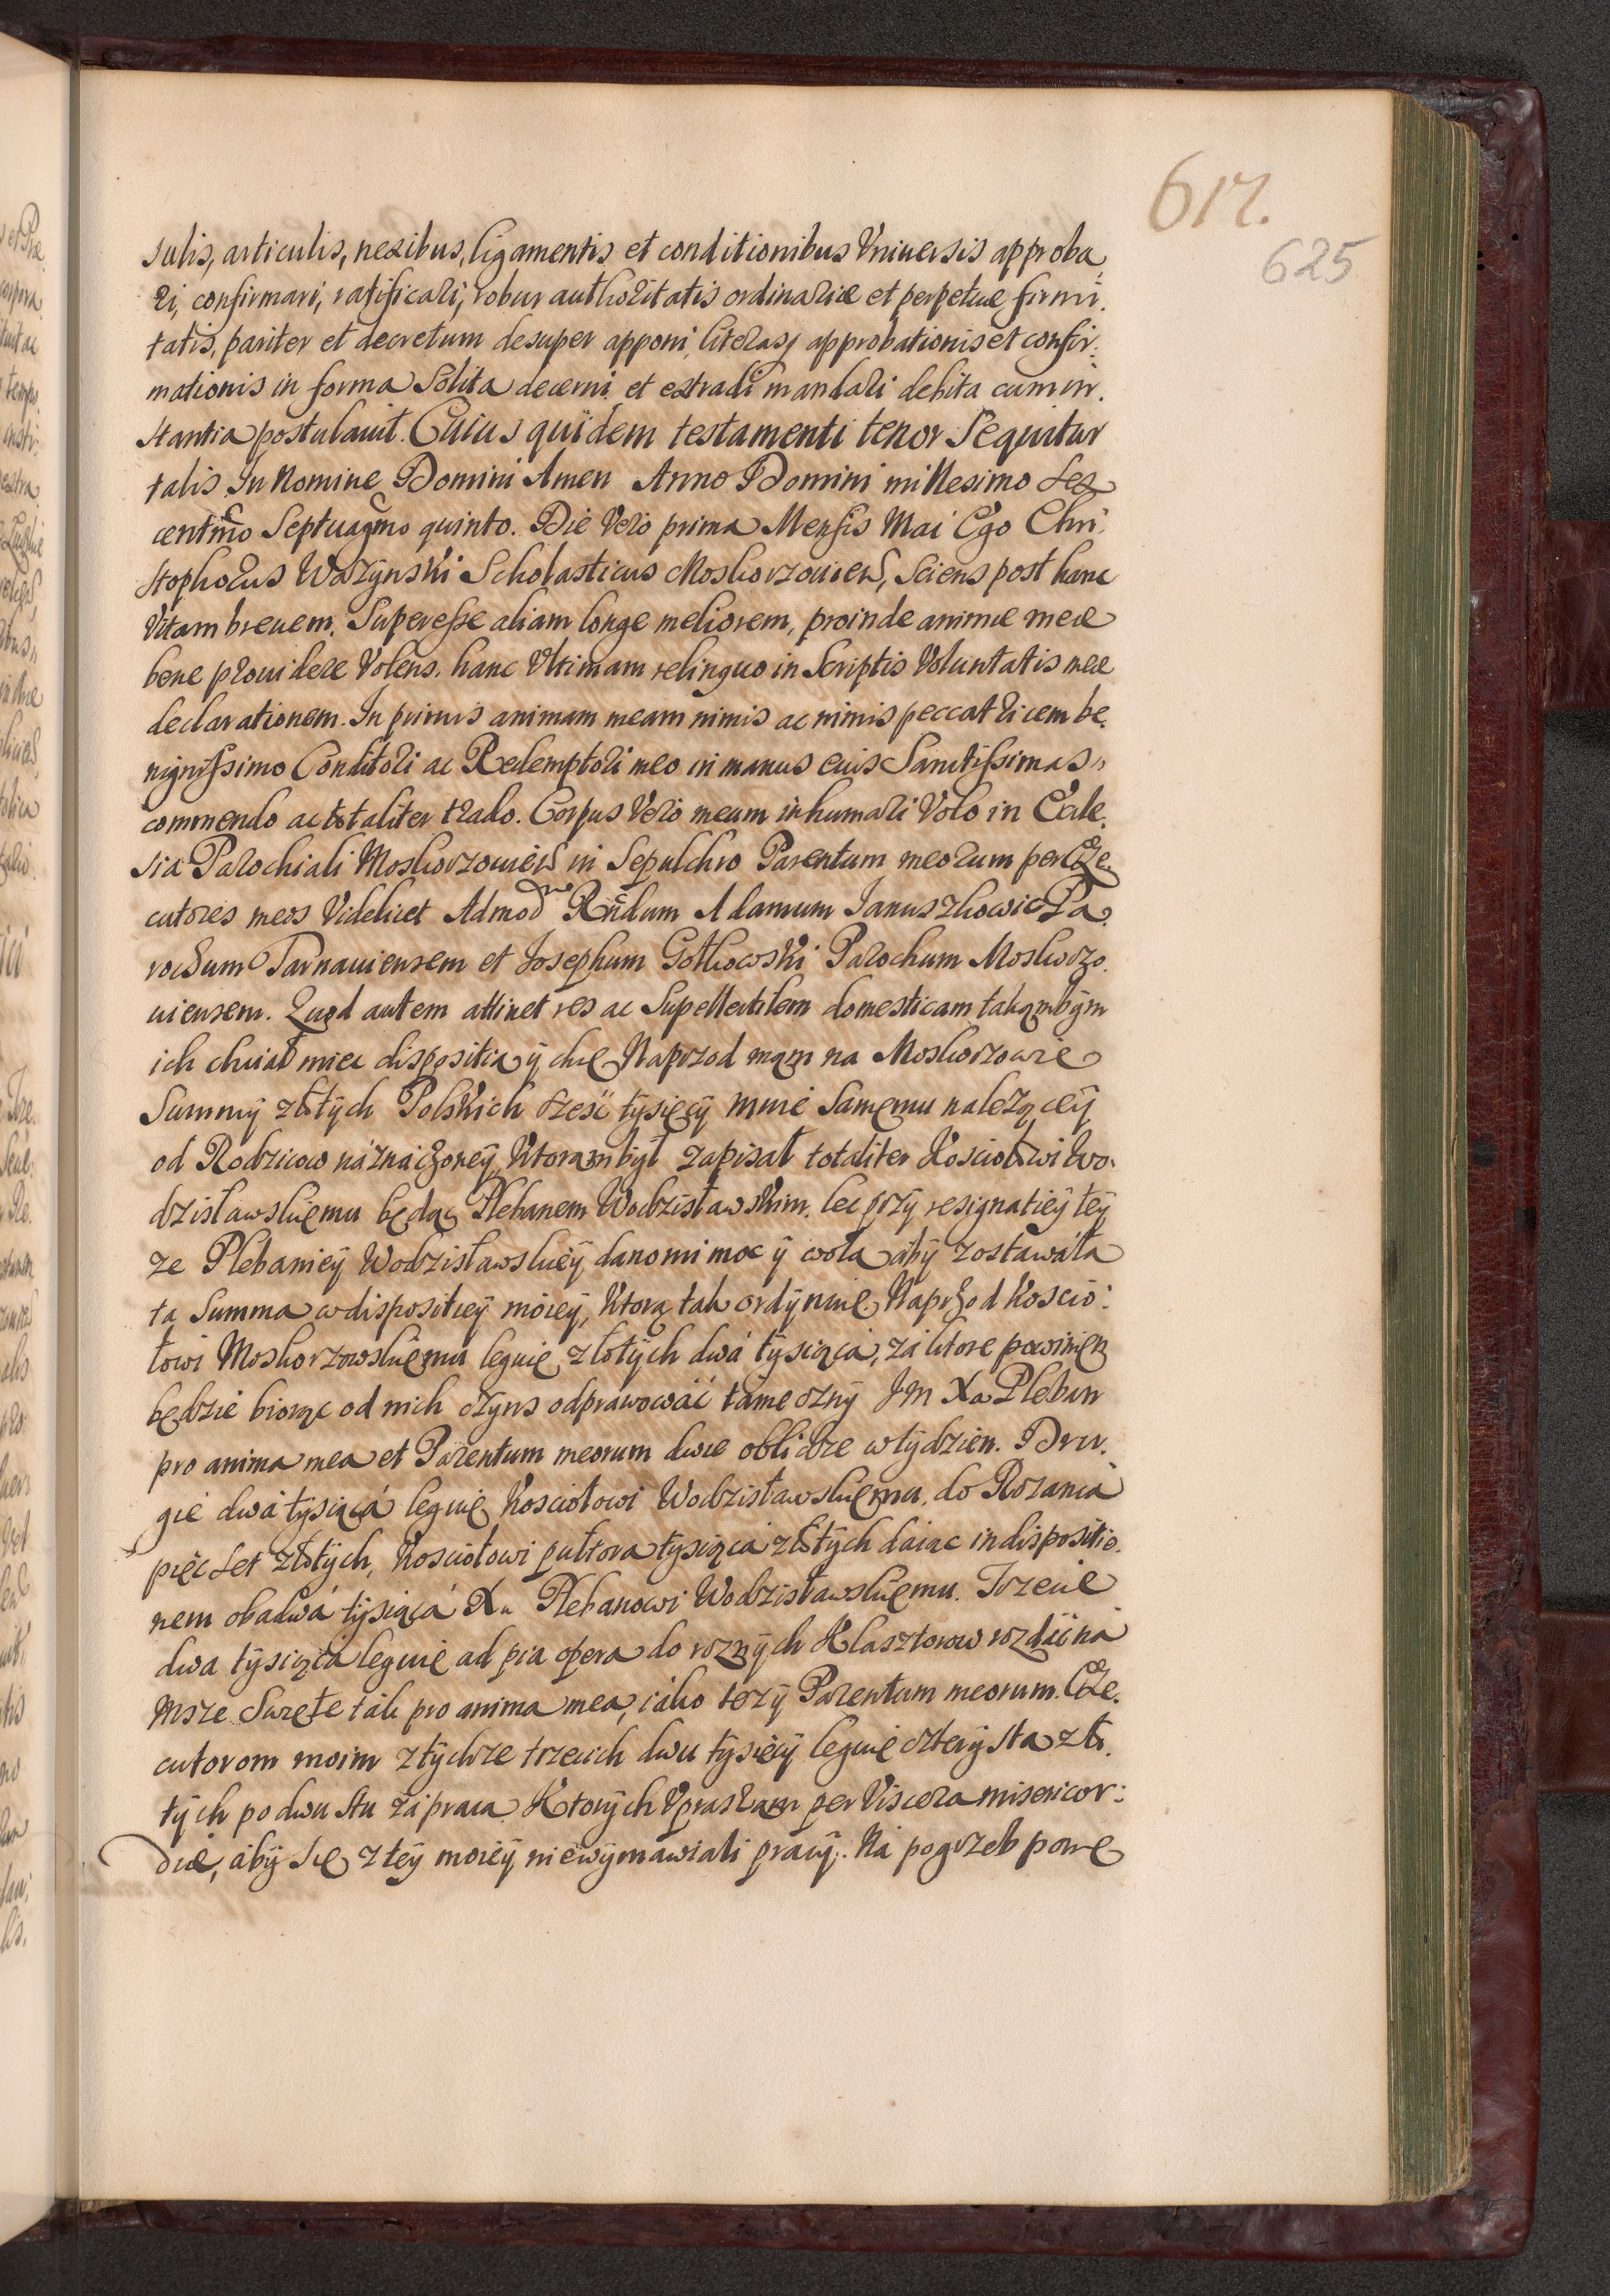 617.
625
sulis, articulis, nexibus, ligamentis et conditionibus Vniuersis approba
ri, confirmari, ratificari, robur authoritatis ordinariæ et perpetuæ firmi.
tatis, pariter et decretum desuper apponi, literasq approbationis et confir:
mationis in forma Solita decerni et extradi mandari debita cum in.
stantia postulauit. Cuius quidem testamenti tenor Sequitur
talis In Nomine Domini Amen Anno Domini millesimo Sex
centmo Septuagmo quinto. Die Vero prima Mensis Mai Ego Chri
stophorus Wazÿnski Scholasticus Moskorzouien, Sciens post hanc
Vitam breuem. Superesse aliam longe meliorem, proinde animæ meæ
bene prouidere Volens. hanc Vltimam relinquo in Scriptis Voluntatis meæ
declarationem. In primis animam meam nimis ac nimis peccatricem be.
nignissimo Conditori ac Redemptori meo in manus euis Sanctissimas
commendo ac totaliter trado. Corpus Vero meum inhumari Volo in Eccle.
sia Parochiali Moskorzouien in Sepulchro Parentum meorum per Exe.
cutores meos Videlicet Admod Rndum Adamum Januszkowic Pa.
rochum Tarnauiensem et Josephum Gotkowski Parochum Moskorzo.
uiensem. Quod autem attinet res ac Supellectilem domesticam takąmbÿm
ich chciał miec disposicią ÿ chcę Naprzod mąm na Moskorzowie
Summÿ złotÿch Polskich sześć tÿsięcÿ mnie Samemu należącęÿ
od Rodzicow náznáczonęÿ, Ktorąm bÿł zapisał totaliter Kosciołowi Wo.
dzisławskiemu będąc Plebanem Wodzisławskim. lec przÿ resignatięÿ tęÿ
ze Plebanięÿ Wodzisławskięÿ, dano mi moc ÿ wolą abÿ zostawáła
ta Summa w dispositięÿ moięÿ, Ktorą tak ordÿnuię. Naprzod Koscio:
łowi Moskorzowskiemu leguię złotÿch dwá tÿsiącá, zá ktore powinien
będzie biorąc od nich czÿns odprawowáć támecznÿ JM Xa Pleban
pro anima mea et Parentum meorum dwie oblicze w tÿdzien. Dru.
gie dwá tÿsiącá leguię Kosciołowi Wodzisławskiemu, do Rozancá
pięc Set złotÿch, Kosciołowi pułtora tÿsiąca złotÿch daiąc in dispositio.
nem obadwá tÿsiącá Xu Plebanowi Wodzisławskiemu. Trzecie
dwa tÿsiącá leguię ad pia opera do roznÿch Klasztorow rozdáć ná
Msze Swięte ták pro anima mea, iáko tezÿ Parentum meorum. Exe.
cutorom moim z tÿchze trzecich dwu tÿsięcÿ leguię czterÿ sta zło.
tÿch po dwu stu zá praca Ktorÿch Vpraszam per Viscera misericor:
diæ, ábÿ Się z tęÿ moięÿ niewÿmawiali pracÿ. Ná pogrzeb powę